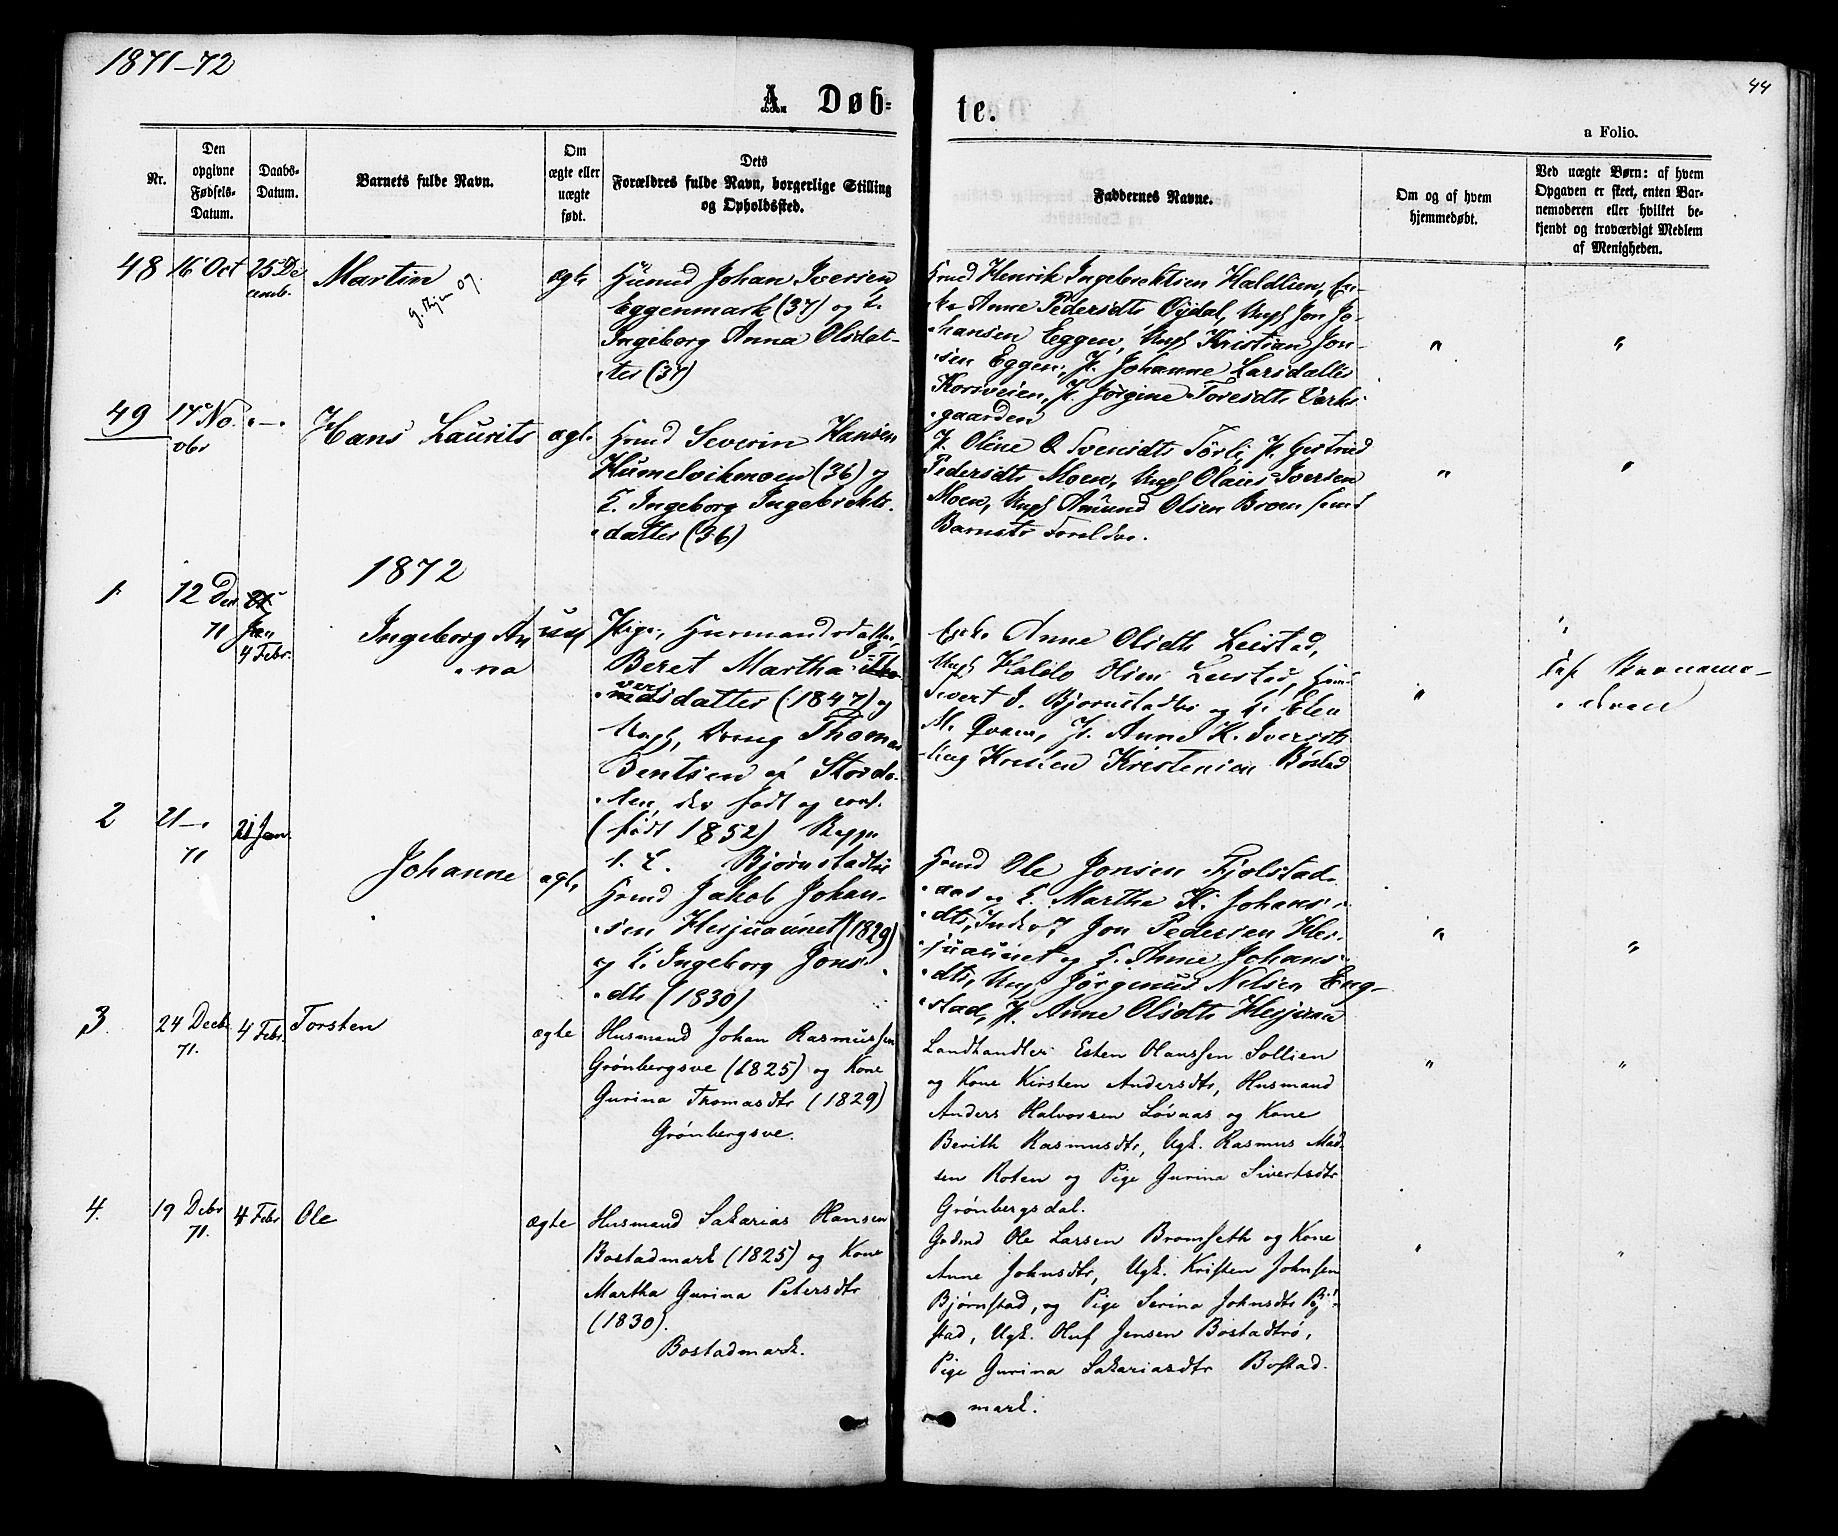 1871-72
44
A. Døb-
te.
a Folio.
Nr.
Den
opgivne
Fødsels-
Datum.
Daabs-
Datum.
Barnets fulde Navn.
Om
ægte eller
uægte
født.
Dets
Forældres fulde Navn, borgerlige Stilling
og Opholdssted.
Faddernes Navne.
Om og af hvem
hjemmedøbt.
Ved uægte Børn: af hvem
Opgaven er skeet, enten Bar-
nemoderen eller hvilket be-
kjendt og troværdigt Medlem
af Menigheden.
48
16 Oct
25 De
cemb.
Martin
ægte
Husmd Johan Iversen
Eggenmark (37) og K.
Ingeborg Anna Olsdat-
ter (37)
Henrik Ingebrektsen Haldlien, En-
ke Anne Pedersdtr Oydal, Ungk Jon Jo-
hansen Eggen, Ungk Kristian Jon-
sen Eggen, P. Johanne Larsdatter
Korsveien, P. Jörgine Toresdtr Verks-
gaarden
49
17 No
vbr
-"-
Hans Laurits
ægte
Husmd Severin Hansen
Humelvikmoen (36) og
K. Ingeborg Ingebrekts-
datter (36)
P. Oline O Svensdtr Törli, P. Gjertrud
Pedersdtr Moen, Ungk Olaus Iversen
Moen, Ungk Amund Olsen Broen samt
Barnets Foreldre.
1872
1
12 Der
71
Jan
4 Febr.
Ingeborg An
na
Pige, Husmandsdatter
Beret Martha
datter (1847) og
Ungk, Dreng Thomas
Bentsen af Stordalen,
der født og conf.
(født 1852)
Bjørnstadtrø
Enke Anne Olsdtr Leistad,
Ungk Olsen Leistad, Husmd
Sivert J. Bjørnstadtrø og K. Elen
M. Qvam, P. Anne K. Iversdtr
Ungk Kristen Kristensen Bostad
"
Barnemo-
deren
2
21 -"-
71
21 Jan.
Johanne
ægte
Husmd Jakob Johan-
sen Hesjuaunet (1829)
og K. Ingeborg Jons-
dtr (1830)
Husmd Ole Jonsen Fjolstad-
aas og K. Martha K. Johans-
dtr, Jon Pedersen Hes-
juaunet og K. Anne Johans-
dtr, Ungk Jörginus Nilsen Eng-
stad, P. Anne Olsdtr Hesjuau
3.
24 Decbr
71.
4 Febr
Torsten
ægte
Husmand Johan Rasmussen
Grønbergsve (1825) og Kone
Gurina Thomasdtr (1829)
Grønbergsve.
Landhandler Esten Olaussen Sollien
og Kone Kirsten Andersdtr, Husmand
Anders Halvorsen Løvaas og Kone
Berith Rasmusdtr, Ugk. Rasmus Mad-
sen Roten og Pige Gurina Sivertsdtr
Grønbergsdal.
4.
19 Debr
71.
4 Febr
Ole
ægte
Husmand Sakarias Hansen
Bostadmark (1825) og Kone
Martha Gurina Petersdtr
(1830).
Bostadmark.
Grdmd Ole Larsen Bromseth og Kone
Anne Johnsdtr, Ugk. Kristen Johnsen
Bjørnstad, og Pige Serina Johnsdtr Bj-
stad, Ugk. Oluf Jensen Bostadtrø,
Pige Gurina Sakariasdtr Bostad-
mark.